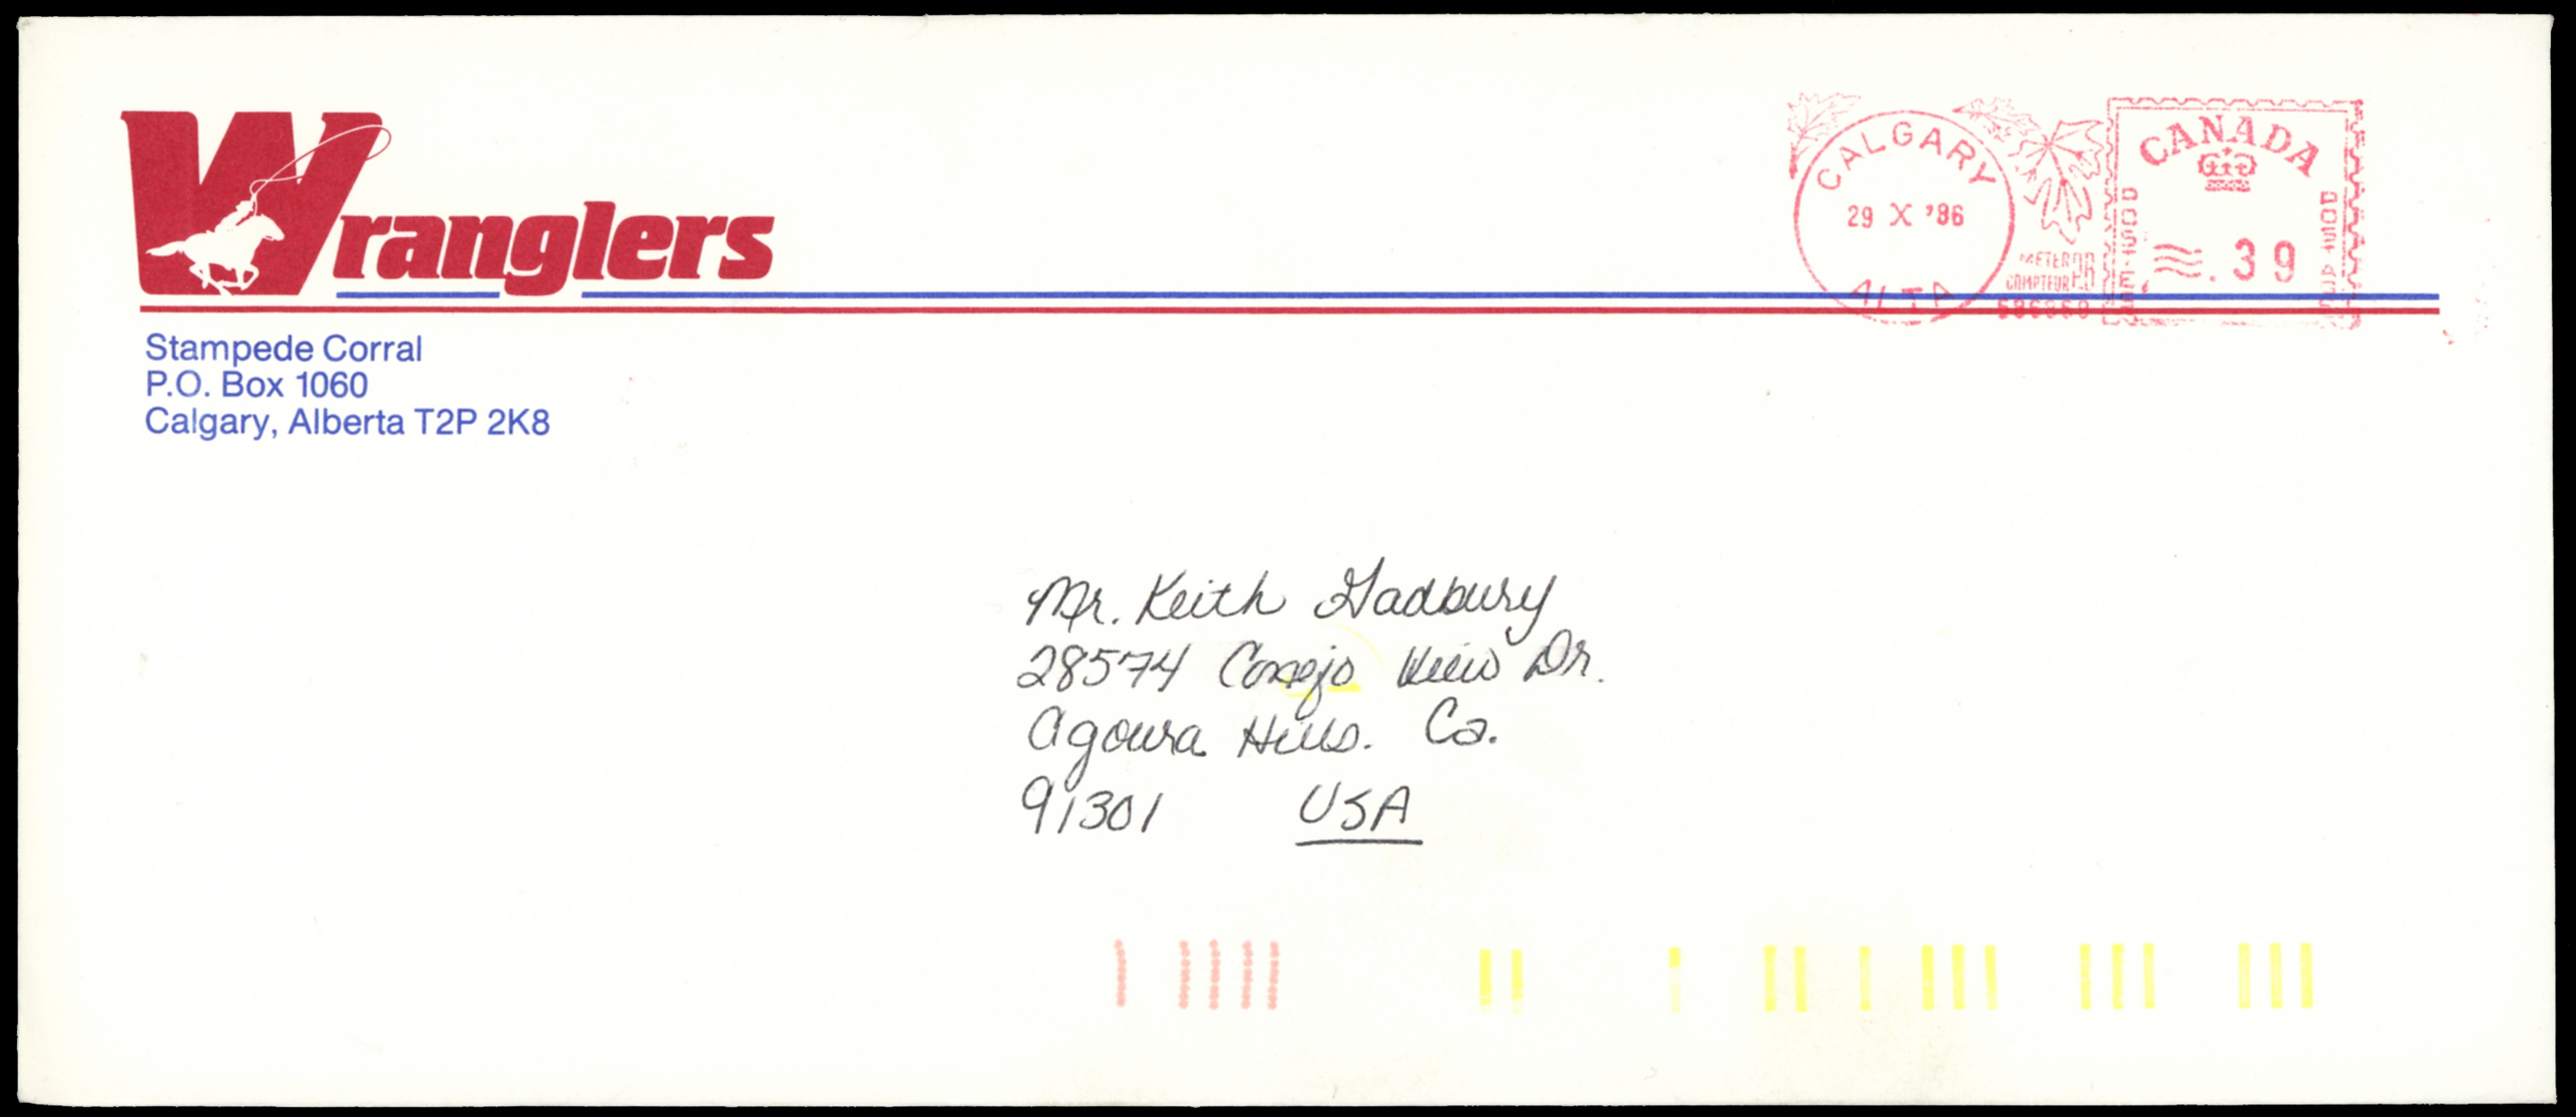 Wranglers
Stampede Corral
P.O. Box 1060
Calgary, Alberta T2P 2K8
CALGARY
29 X '86
ALTA
METER
COMPTEUR
CANADA
.39
Mr. Keith Gadbury
28574 Conejo View Dr.
Agoura Hills. Ca.
91301 USA